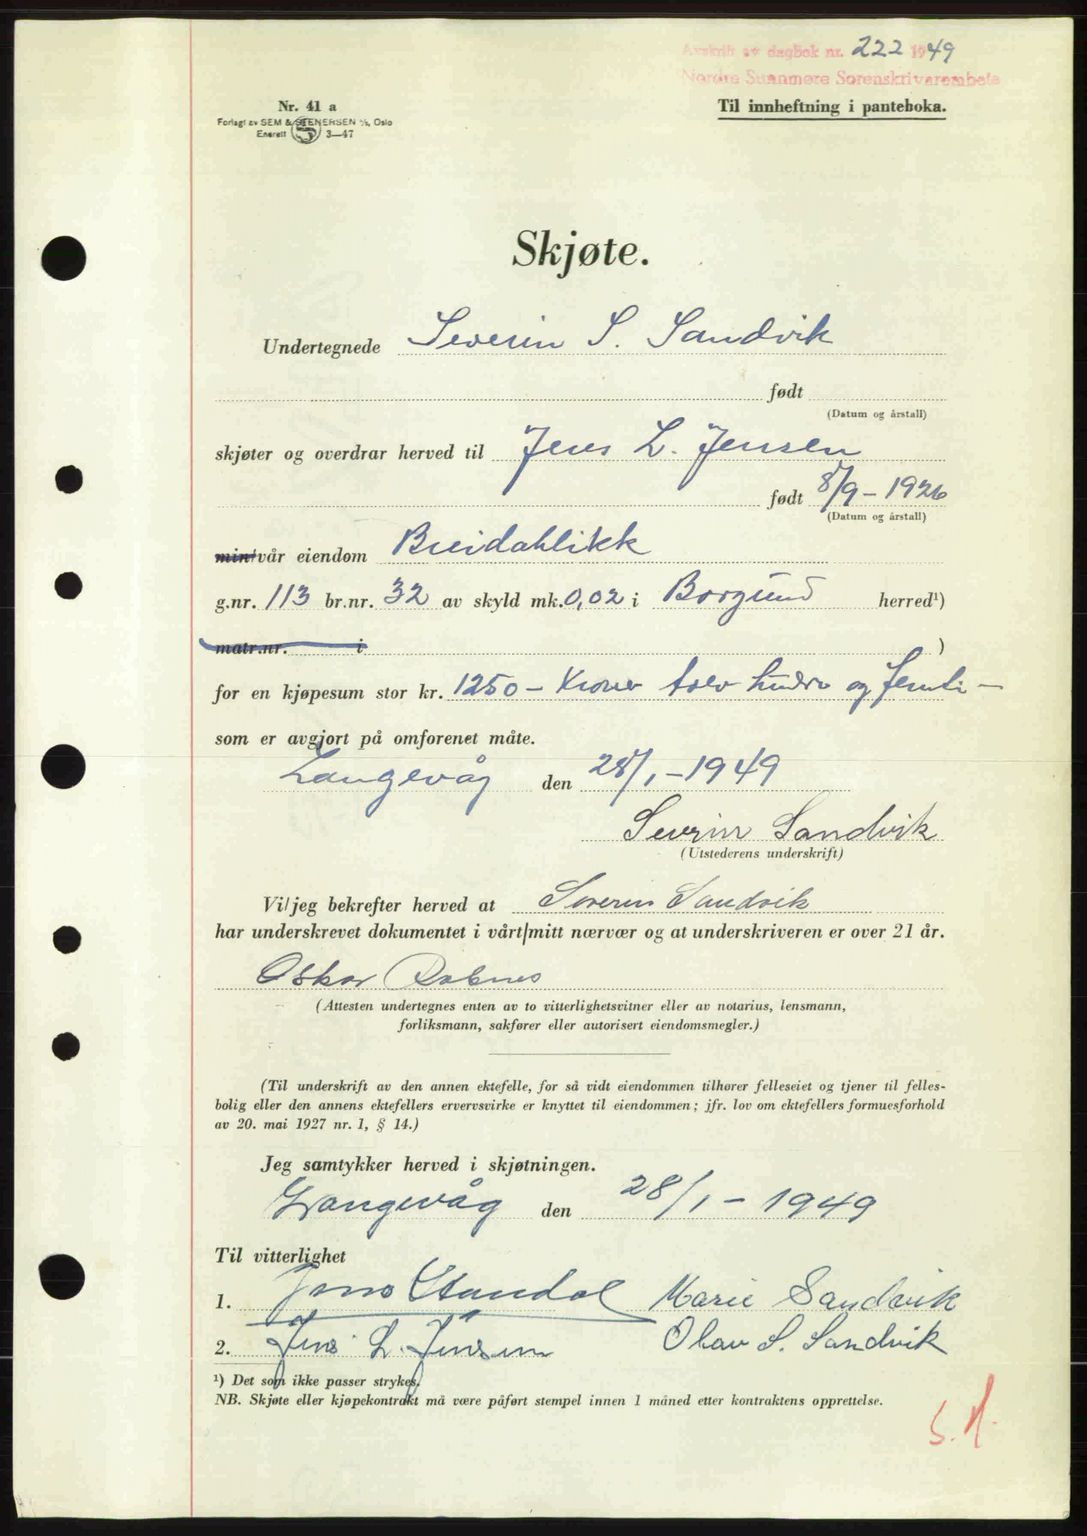 Avskrift av dagbok nr. 222 1949
Nordre Sunnmøre Sorenskriverembete
Nr. 41 a
Til innheftning i panteboka.
Forlagt av SEM & STENERSEN A/S, Oslo
Enerett 3—47
Skjøte.
Undertegnede Severin S. Sandvik
født
(Datum og årstall)
skjøter og overdrar herved til Jens L. Jensen
født 8/9 - 1926
(Datum og årstall)
min/vår eiendom Breidablikk
g.nr. 113 br.nr. 32 av skyld mk. 0,02 i Borgund herred¹)
matr.nr. i )
for en kjøpesum stor kr. 1250 - Kroner tolv hundre og femti -
som er avgjort på omforenet måte.
Langevåg den 28/1 - 1949
Severin Sandvik
(Utstederens underskrift)
Vi/jeg bekrefter herved at Severin Sandvik
har underskrevet dokumentet i vårt/mitt nærvær og at underskriveren er over 21 år.
Oskar
(Attesten undertegnes enten av to vitterlighetsvitner eller av notarius, lensmann,
forliksmann, sakfører eller autorisert eiendomsmegler.)
(Til underskrift av den annen ektefelle, for så vidt eiendommen tilhører felleseiet og tjener til felles-
bolig eller den annens ektefellers ervervsvirke er knyttet til eiendommen; jfr. lov om ektefellers formuesforhold
av 20. mai 1927 nr. 1, § 14.)
Jeg samtykker herved i skjøtningen.
Langevåg den 28/1 - 1949
Til vitterlighet
1. Jens Standal Marie Sandvik
2. Jens L. Jensen Olav S. Sandvik
¹) Det som ikke passer strykes.
NB. Skjøte eller kjøpekontrakt må være påført stempel innen 1 måned etter kontraktens opprettelse.